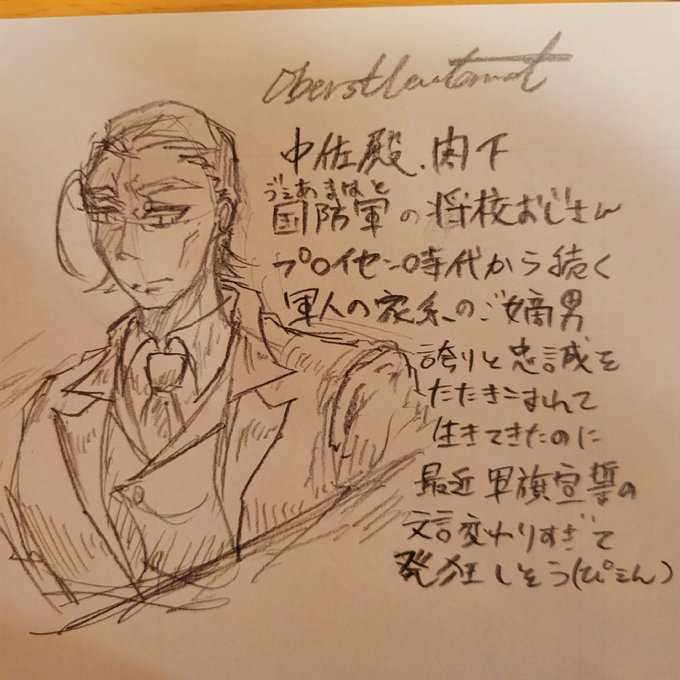 Oberstleutnant
中佐殿、閣下
ゔぇあまはと
国防軍の将校おじさん
プロイセン時代から続く
軍人の家系のご嫡男
誇りと忠誠を
たたきこまれて
生きてきたのに
最近軍旗宣誓の
文言変わりすぎて
発狂しそう(ぴえん)